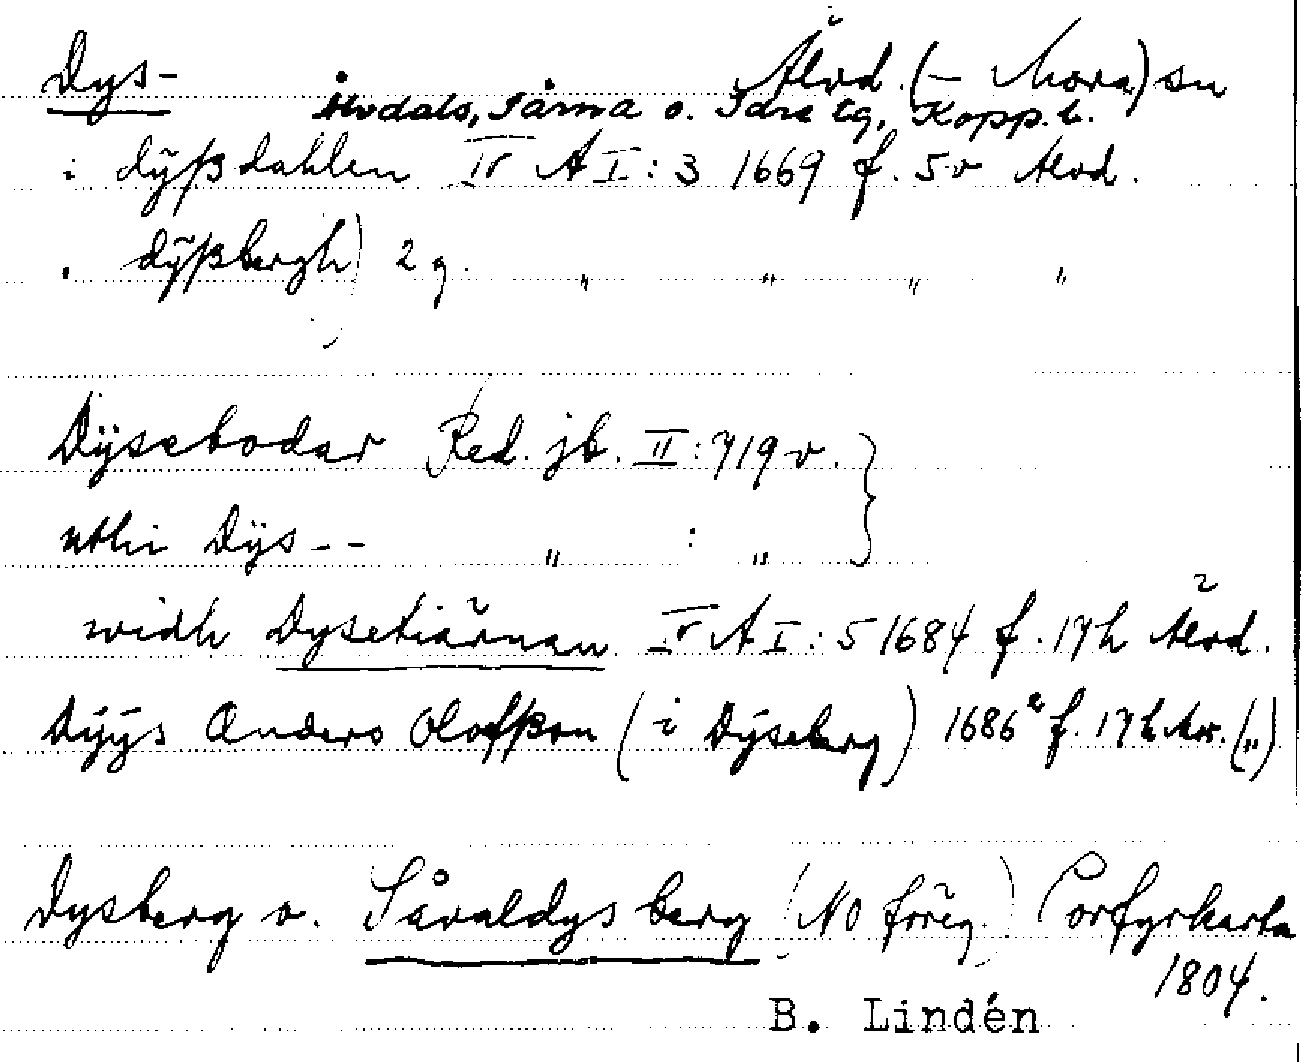 Dys- Älvd. (- Mora) sn
Älvdals, Särna o. Idre tg, Kopp. l.
i dÿßdahlen IV A I:3 1669 f. 5v Älvd.
" dÿßbergh) 2 g. " " " "
Dÿsebodar Red. jb. II:719 v. }
uthi Dÿs-- " : " }
widh Dysetiärnan IV A I:5 1684 f. 17h Älvd.
Dÿÿs Anders Olofßon (i Dÿseberg) 1686 f. 17h Äv. (")
Dysberg o. Såvaldysberg (NO föreg.) Porfyrkarta
1804.
B. Lindén